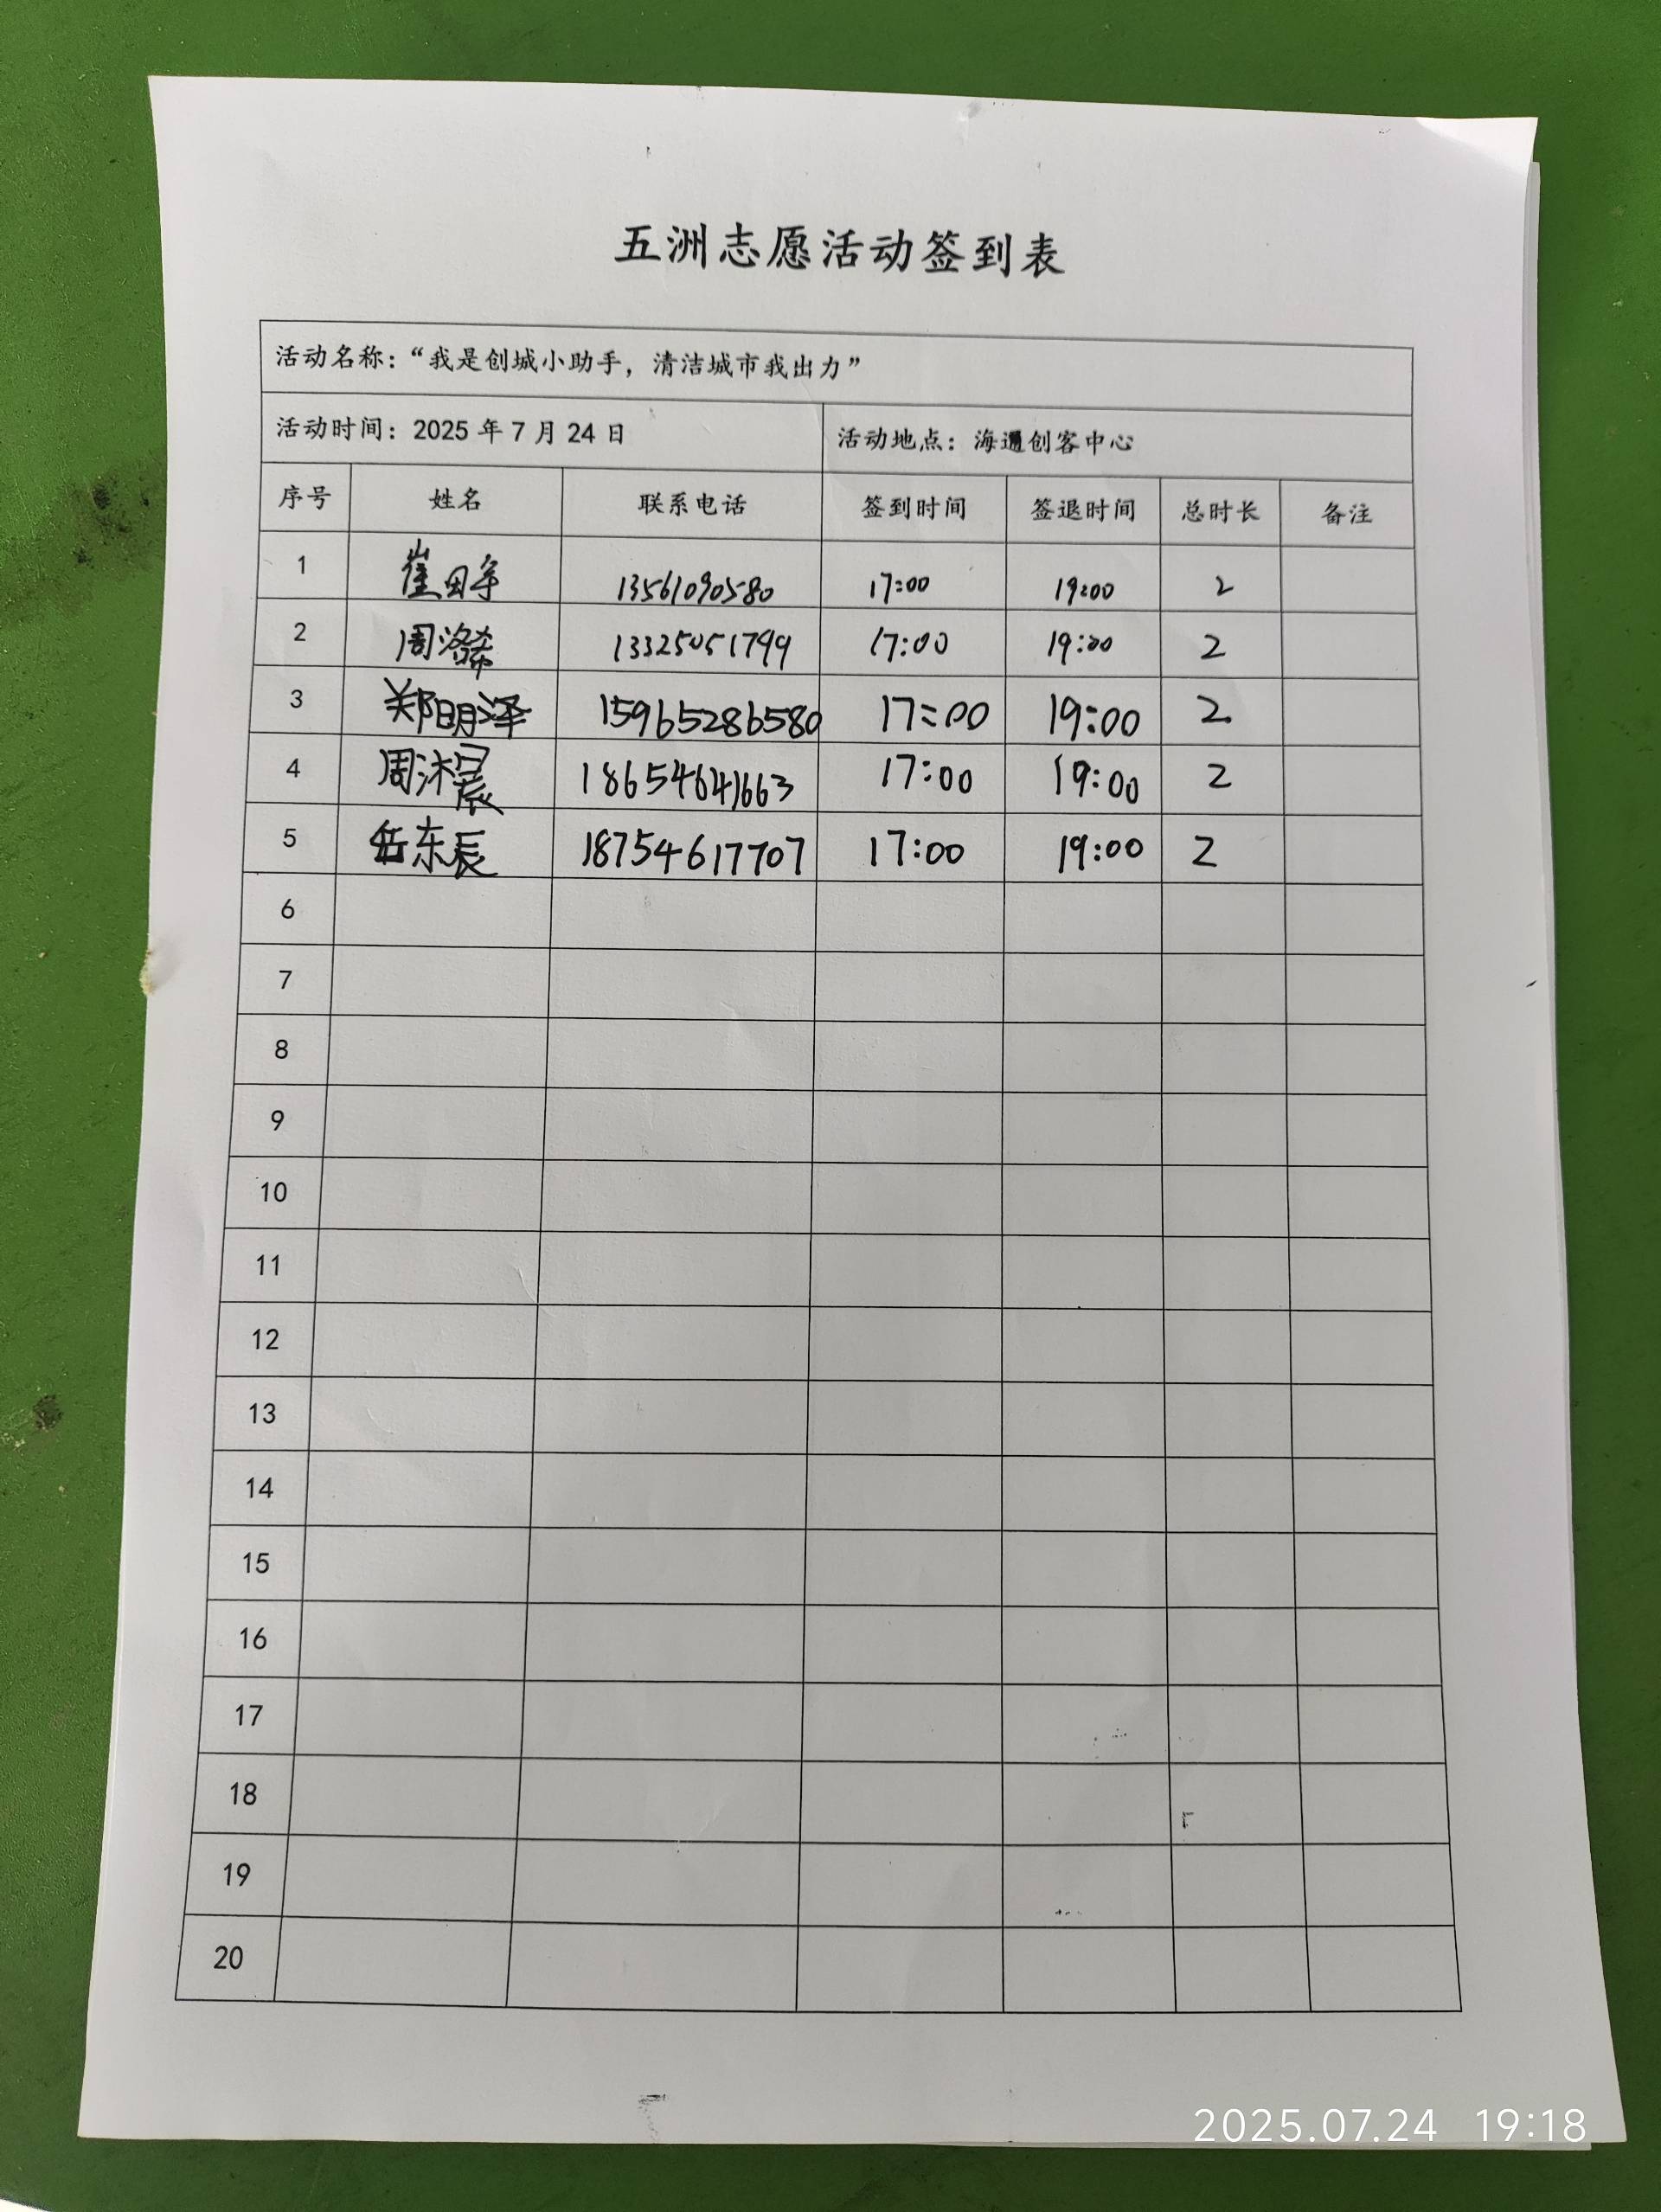 五洲志愿活动签到表
活动名称：“我是创城小助手，清洁城市我出力”
活动时间：2025年7月24日 活动地点：海通创客中心
序号 姓名 联系电话 签到时间 签退时间 总时长 备注
1 崔田宇 13561090580 17:00 19:00 2
2 周洛希 13325051799 17:00 19:00 2
3 郑明泽 15965286580 17:00 19:00 2
4 周沐晨 18654641663 17:00 19:00 2
5 岳东辰 18754617707 17:00 19:00 2
6
7
8
9
10
11
12
13
14
15
16
17
18
19
20
2025.07.24 19:18